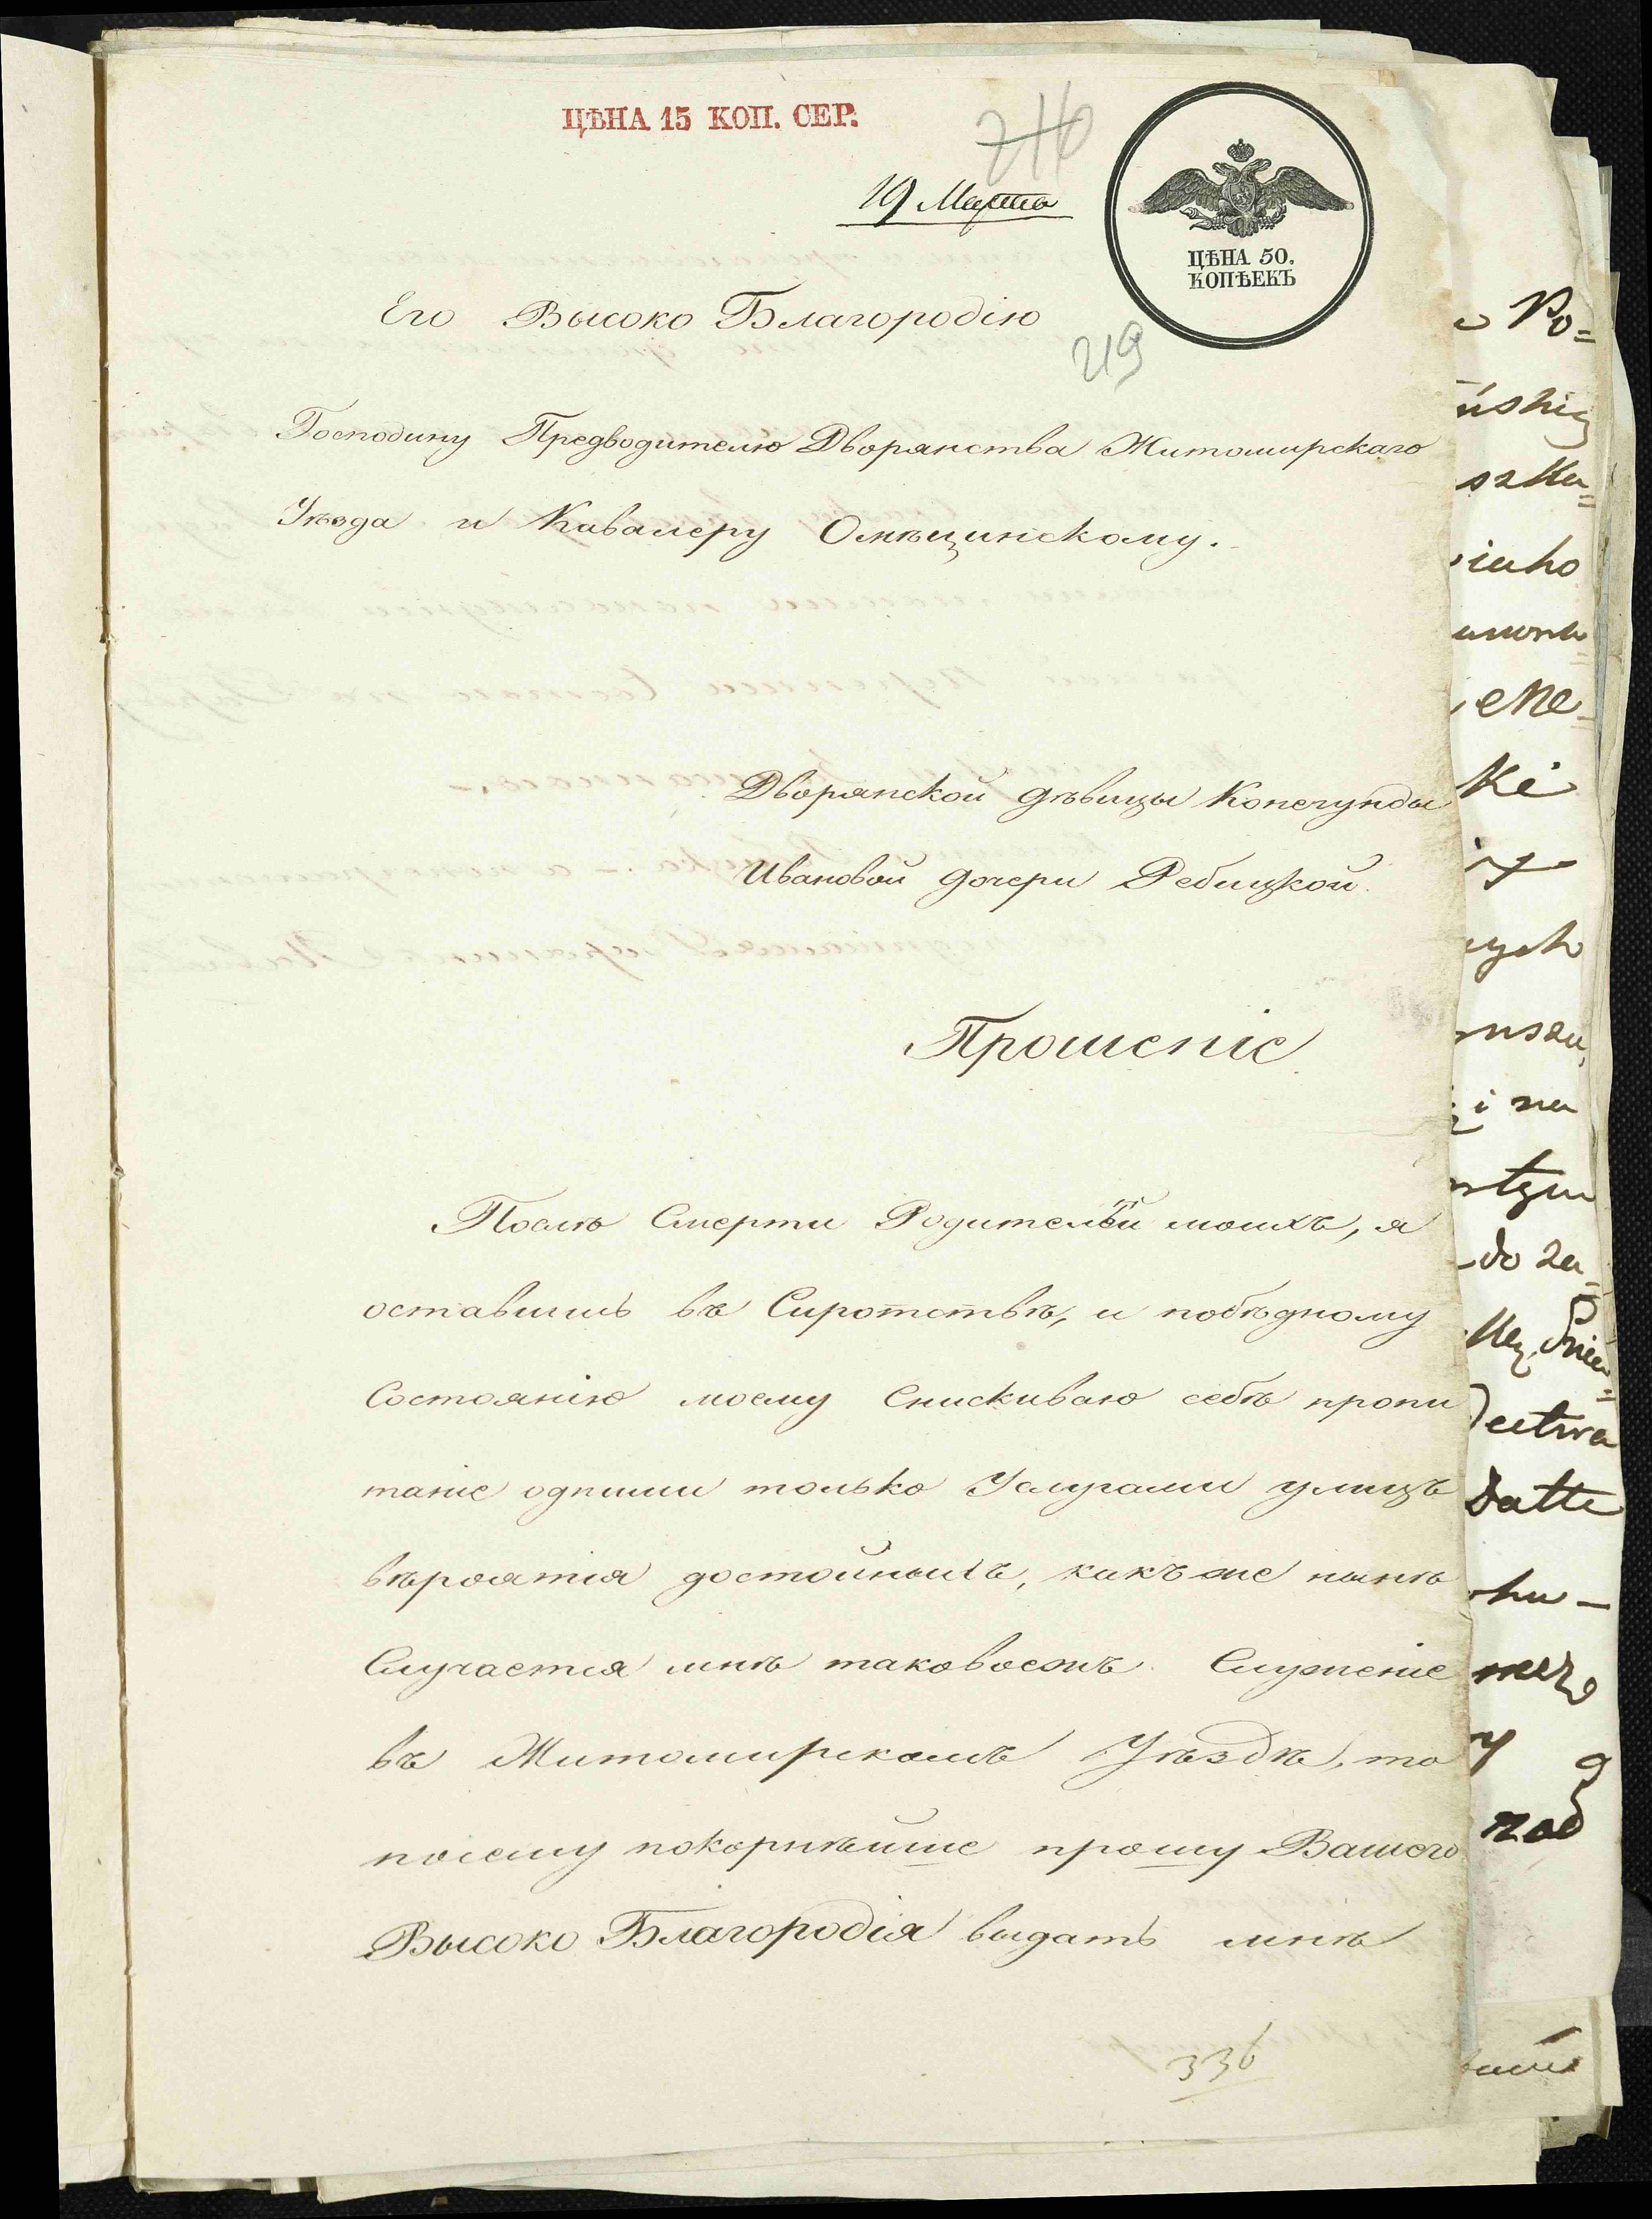 ЦѢНА 15 КОП. СЕР.
216
19 Марта
ЦѢНА 50.
КОПѢЕКЪ
Его Высоко Благородію
219
Господину Предводителю Дворянства Житомирскаго
Уѣзда и Кавалеру Омѣцинскому.
Дворянской дѣвицы Конегунды
Ивановой дочери Ребицкой.
Прошеніе
Послѣ Смерти Родителей моихъ, я
оставшись въ Сиротствѣ, и побѣдному
Состоянію моему Снискиваю себѣ пропи
таніе одними только Услугами улицъ
вѣроятія достойныхъ, какъ же нынѣ
Случается мнѣ таковоежъ Служеніе
въ Житомирскомъ Уѣздѣ, то
посему покорнѣйше прошу Вашего
Высоко Благородія выдать мнѣ
336